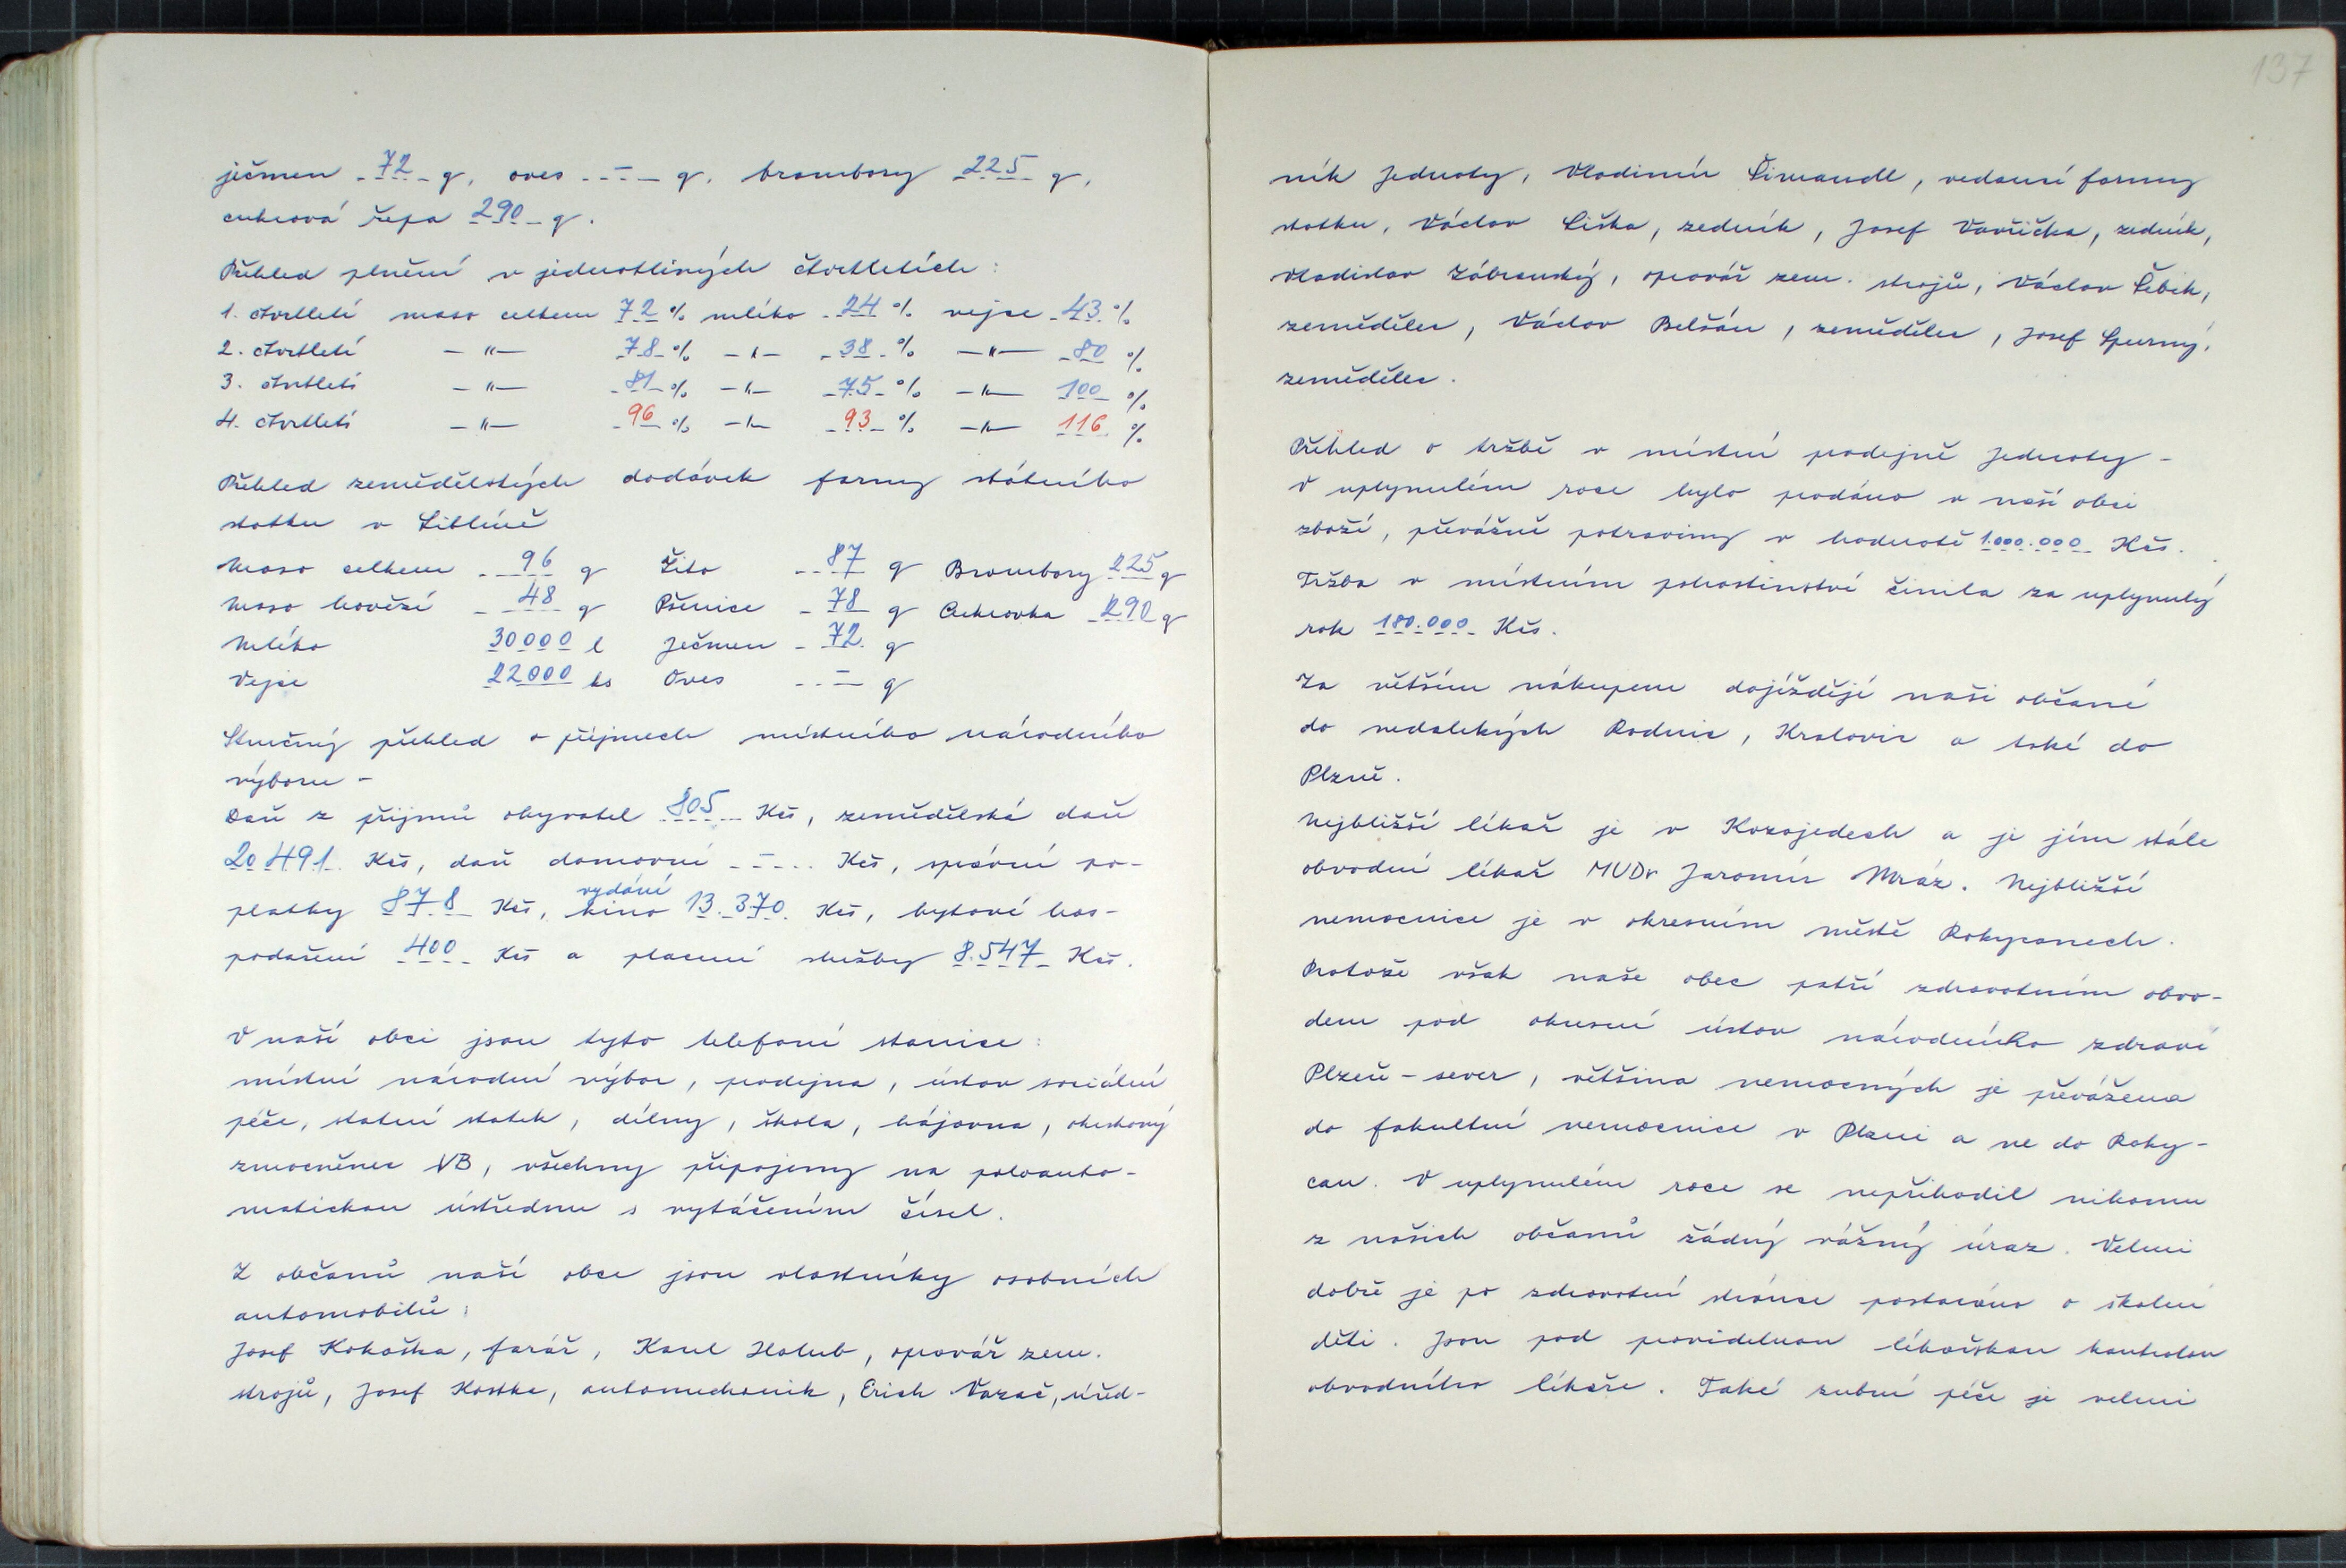 ječmen 72 q, oves - q, brambory 225 q,
cukrová řepa 290 q.
Přehled plnění v jednotlivých čtvrtletích:
1. čtvrtletí maso celkem 72 % mléko 24 % vejce 43 %
2. čtvrtletí -"- 78 % -"- 38 % -"- 80 %
3. čtvrtletí -"- 81 % -"- 75 % -"- 100 %
4. čtvrtletí -"- 96 % -"- 93 % -"- 116 %
Přehled zemědělských dodávek farmy státního
statku v Liblíně
Maso celkem 96 q Žito 87 q Brambory 225 q
Maso hovězí 48 q Pšenice 78 q Cukrovka 290 q
Mléko 30000 l Ječmen 72 q
Vejce 22000 ks Oves - q
Stručný přehled o příjmech místního národního
výboru -
Daň z příjmů obyvatel 805 Kčs, zemědělská daň
20 491 Kčs, daň domovní - Kčs, správní po-
platky 878 Kčs, vydání kino 13.370 Kčs, bytové hos-
podaření 400 Kčs a placené služby 8.547 Kčs.
V naší obci jsou tyto telefoní stanice:
místní národní výbor, prodejna, ústav sociální
péče, statní statek, dílny, škola, hájovna, okrskový
zmocněnec VB, všechny připojeny na poloauto-
matickou ústřednu s vytáčením čísel.
Z občanů naší obce jsou vlastníky osobních
automobilů:
Josef Kokoška, farář, Karel Holub, opravář zem.
strojů, Josef Kostka, automechanik, Erich Vazač, úřed-
137
ník Jednoty, Vladimír Šimandl, vedoucí farmy
statku, Václav Liška, zedník, Josef Vavřička, zedník,
Vladislav Zábranský, opravář zem. strojů, Václav Šebek,
zemědělec, Václav Belšán, zemědělec, Josef Spurný,
zemědělec.
Přehled o tržbě v místní prodejně Jednoty -
V uplynulém roce bylo prodáno v naší obci
zboží, převážně potraviny v hodnotě 1.000.000 Kčs.
Tržba v místním pohostinství činila za uplynulý
rok 180.000 Kčs.
Za větším nákupem dojíždějí naši občané
do nedalekých Radnic, Kralovic a také do
Plzně.
Nejbližší lékař je v Kozojedech a je jím stále
obvodní lékař MUDr Jaromír Mráz. Nejbližší
nemocnice je v okresním městě Rokycanech.
Protože však naše obec patří zdravotním obvo-
dem pod okresní ústav národního zdraví
Plzeň - sever, většina nemocných je převážena
do fakultní nemocnice v Plzni a ne do Roky-
can. V uplynulém roce se nepřihodil nikomu
z našich občanů žádný vážný úraz. Velmi
dobře je po zdravotní stránce postaráno o školní
děti. Jsou pod pravidelnou lékařskou kontrolou
obvodního lékaře. Také zubní péče je velmi